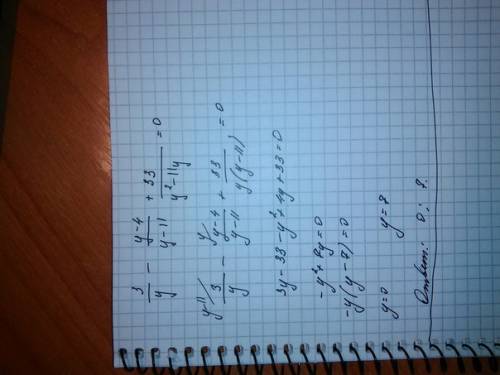 3/y − (y−4)/(y−11) + 33/(y²−11y) = 0
y−11/ 3/y − y/ (y−4)/(y−11) + 33/(y(y−11)) = 0
3y − 33 − y² + 4y + 33 = 0
−y² + 7y = 0
−y(y−7) = 0
y=0 y=7
Ответ: 0; 7.